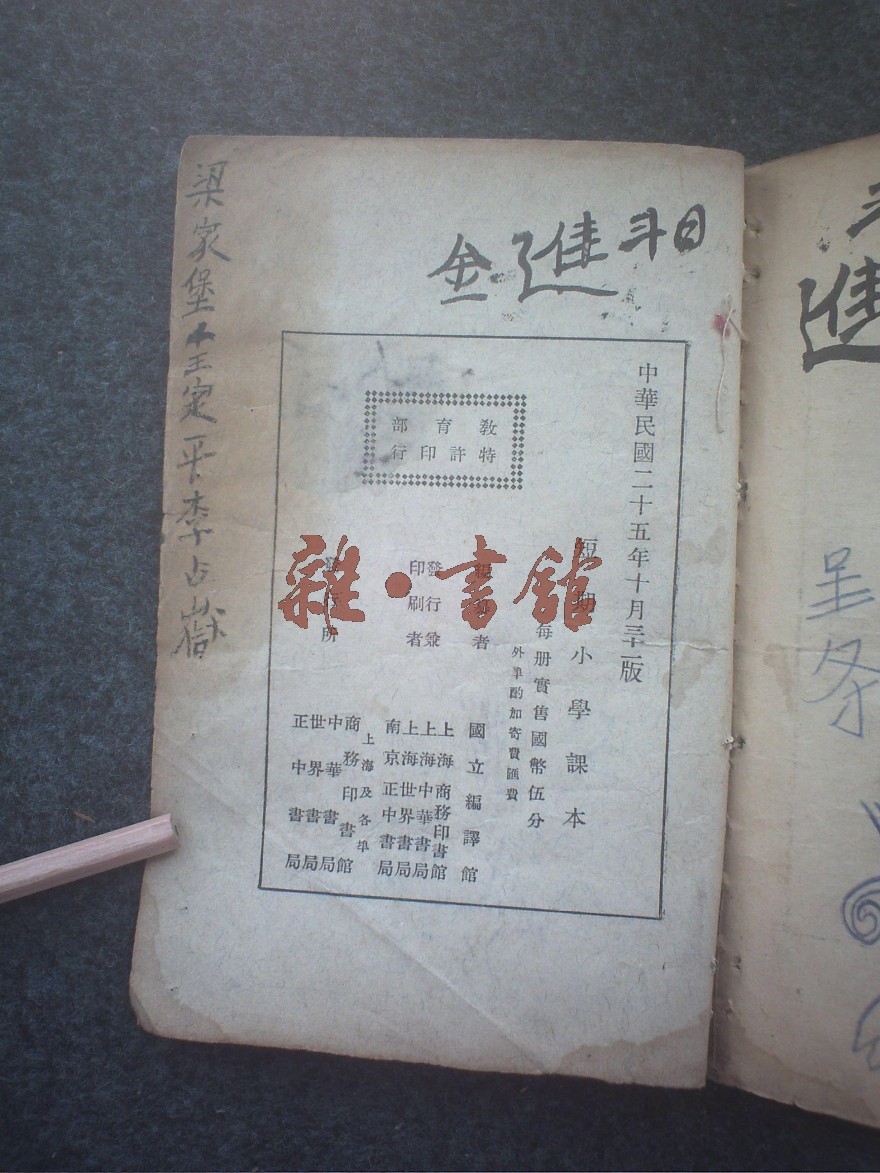 進斗
金進斗日
中華民國二十五年十月三十二版
短期小學課本
每册實售國幣伍分
外埠酌加寄費匯費
教育部
特許印行
編輯者 國立編譯館
發行兼
印刷者
上海商務印書館
上海中華書局
上海世界書局
南京正中書局
發行所
上海及各埠
商務印書館
中華書局
世界書局
正中書局
梁家堡
定平李占嶽
雜·書館